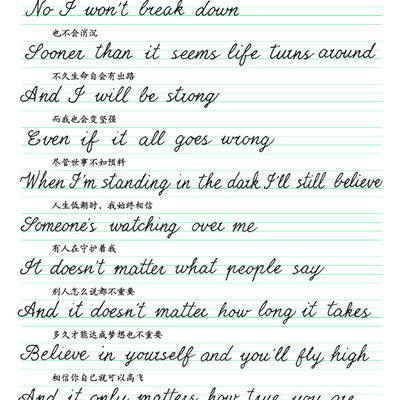 No I won't break down
也不会消沉
Sooner than it seems life turns around
不久生命自会有出路
And I will be strong
而我也会变坚强
Even if it all goes wrong
尽管世事不如预料
When I'm standing in the dark I'll still believe
人生低潮时，我始终相信
Someone's watching over me
有人在守护着我
It doesn't matter what people say
别人怎么说都不重要
And it doesn't matter how long it takes
多久才能达成梦想也不重要
Believe in yourself and you'll fly high
相信你自己就可以高飞
And it only matters how true you are